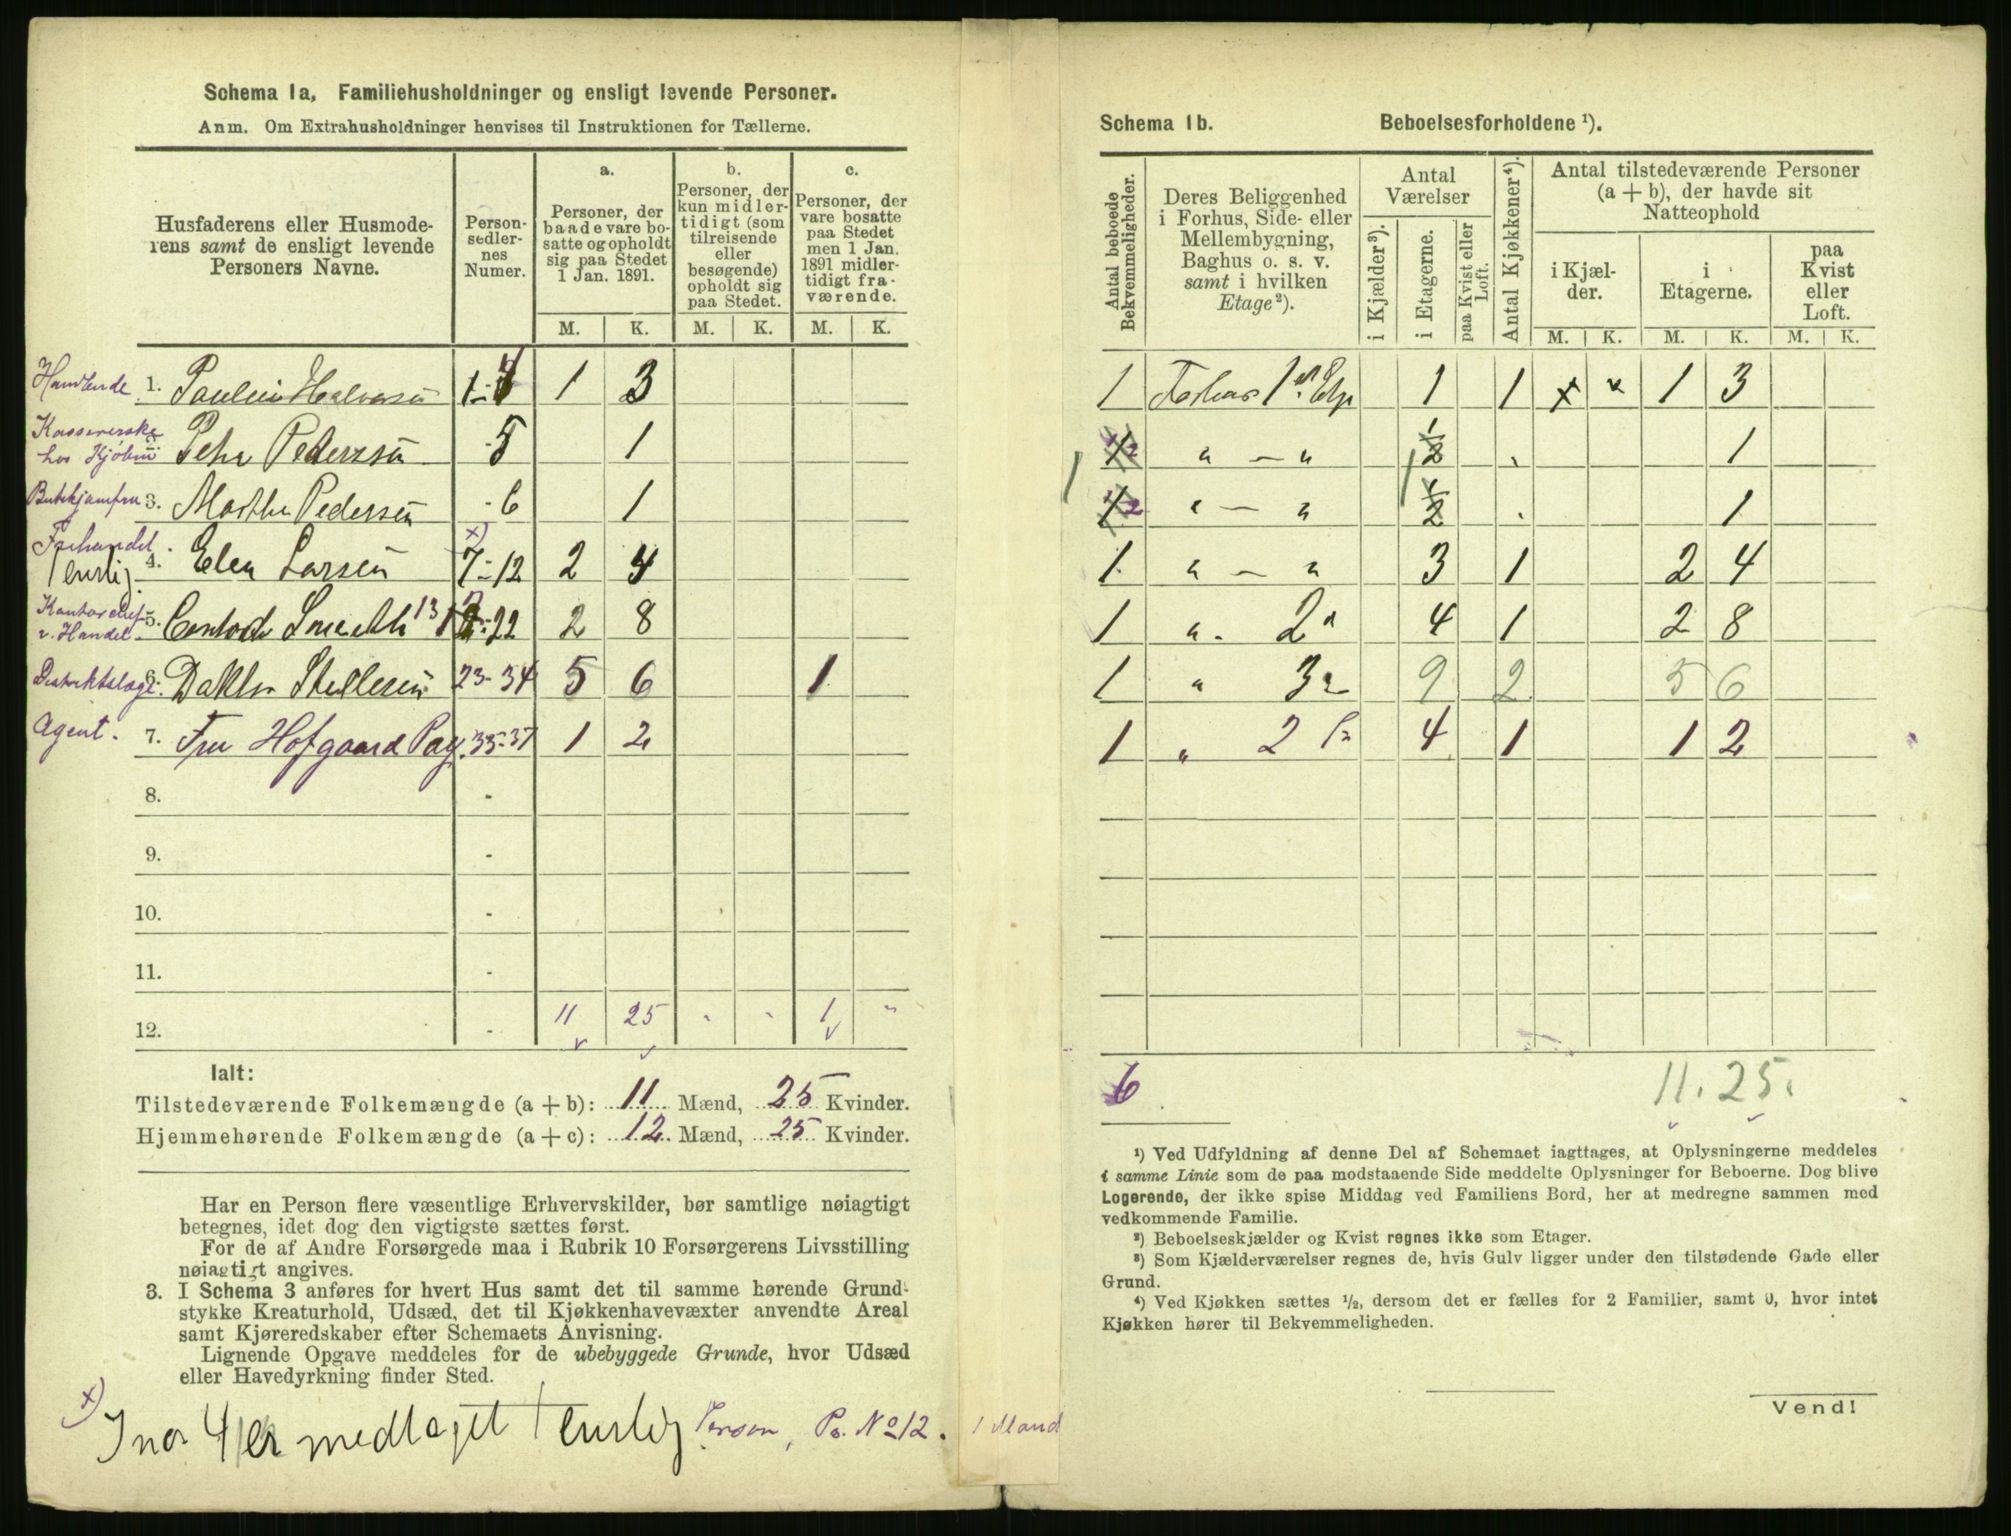 Schema 1a, Familiehusholdninger og ensligt levende Personer.
Anm. Om Extrahusholdninger henvises til Instruktionen for Tællerne.
Husfaderens eller Husmode-
rens samt de ensligt levende
Personers Navne.
Person-
sedler-
nes
Numer.
a.
Personer, der
baade vare bo-
satte og opholdt
sig paa Stedet
1 Jan. 1891.
b.
Personer, der
kun midler-
tidigt (som
tilreisende
eller
besøgende)
opholdt sig
paa Stedet.
c.
Personer, der
vare bosatte
paa Stedet
men 1 Jan.
1891 midler-
tidigt fra-
værende.
M. K. M. K. M. K.
Handlende 1. 1-4 1 3
Kassererske
hos Kjøbm Petra Pedersen 5 1
Butikjomfru 3. Martha Pedersen - 6 1
Frihandel. 4. Elen Larsen x) 7-12 2 4
1 enslig
Kontorchef
v. Handel 5. 13-22 2 8
Distriktslæge 6. Doktor 23-34 5 6 1
Agent. 7. Fru Hofgaard 35-37 1 2
8. -
9. -
10. -
11. -
12. - 11 25 " " 1 "
Ialt:
Tilstedeværende Folkemængde (a + b): 11 Mænd, 25 Kvinder.
Hjemmehørende Folkemængde (a + c): 12 Mænd, 25 Kvinder.
Har en Person flere væsentlige Erhvervskilder, bør samtlige nøiagtigt
betegnes, idet dog den vigtigste sættes først.
For de af Andre Forsørgede maa i Rubrik 10 Forsørgerens Livsstilling
nøiagtigt angives.
3. I Schema 3 anføres for hvert Hus samt det til samme hørende Grund-
stykke Kreaturhold, Udsæd, det til Kjøkkenhavevæxter anvendte Areal
samt Kjøreredskaber efter Schemaets Anvisning.
Lignende Opgave meddeles for de ubebyggede Grunde, hvor Udsæd
eller Havedyrkning finder Sted.
x) I no. 4 er medtaget 1 enslig Person, Ps. No 12. 1 Mand
Schema 1b. Beboelsesforholdene ¹).
Antal beboede
Bekvemmeligheder.
Deres Beliggenhed
i Forhus, Side- eller
Mellembygning,
Baghus o. s. v.
samt i hvilken
Etage²).
Antal
Værelser
i Kjælder³).
i Etagerne.
paa Kvist eller
Loft.
Antal Kjøkkener⁴).
Antal tilstedeværende Personer
(a + b), der havde sit
Natteophold
i Kjæl-
der.
i
Etagerne.
paa
Kvist
eller
Loft.
M. K. M. K. M. K.
1 Forhus 1st Etg 1 1 x x 1 3
" — " 1/2 1
1 " — " 1/2 1
1 " — " 3 1 2 4
1 " 2" 4 1 2 8
1 " 3" 9 2 5 6
1 " 2 4 1 1 2
6 11. 25.
¹) Ved Udfyldning af denne Del af Schemaet iagttages, at Oplysningerne meddeles
i samme Linie som de paa modstaaende Side meddelte Oplysninger for Beboerne. Dog blive
Logerende, der ikke spise Middag ved Familiens Bord, her at medregne sammen med
vedkommende Familie.
²) Beboelseskjælder og Kvist regnes ikke som Etager.
³) Som Kjælderværelser regnes de, hvis Gulv ligger under den tilstødende Gade eller
Grund.
⁴) Ved Kjøkken sættes ½, dersom det er fælles for 2 Familier, samt 0, hvor intet
Kjøkken hører til Bekvemmeligheden.
Vend!